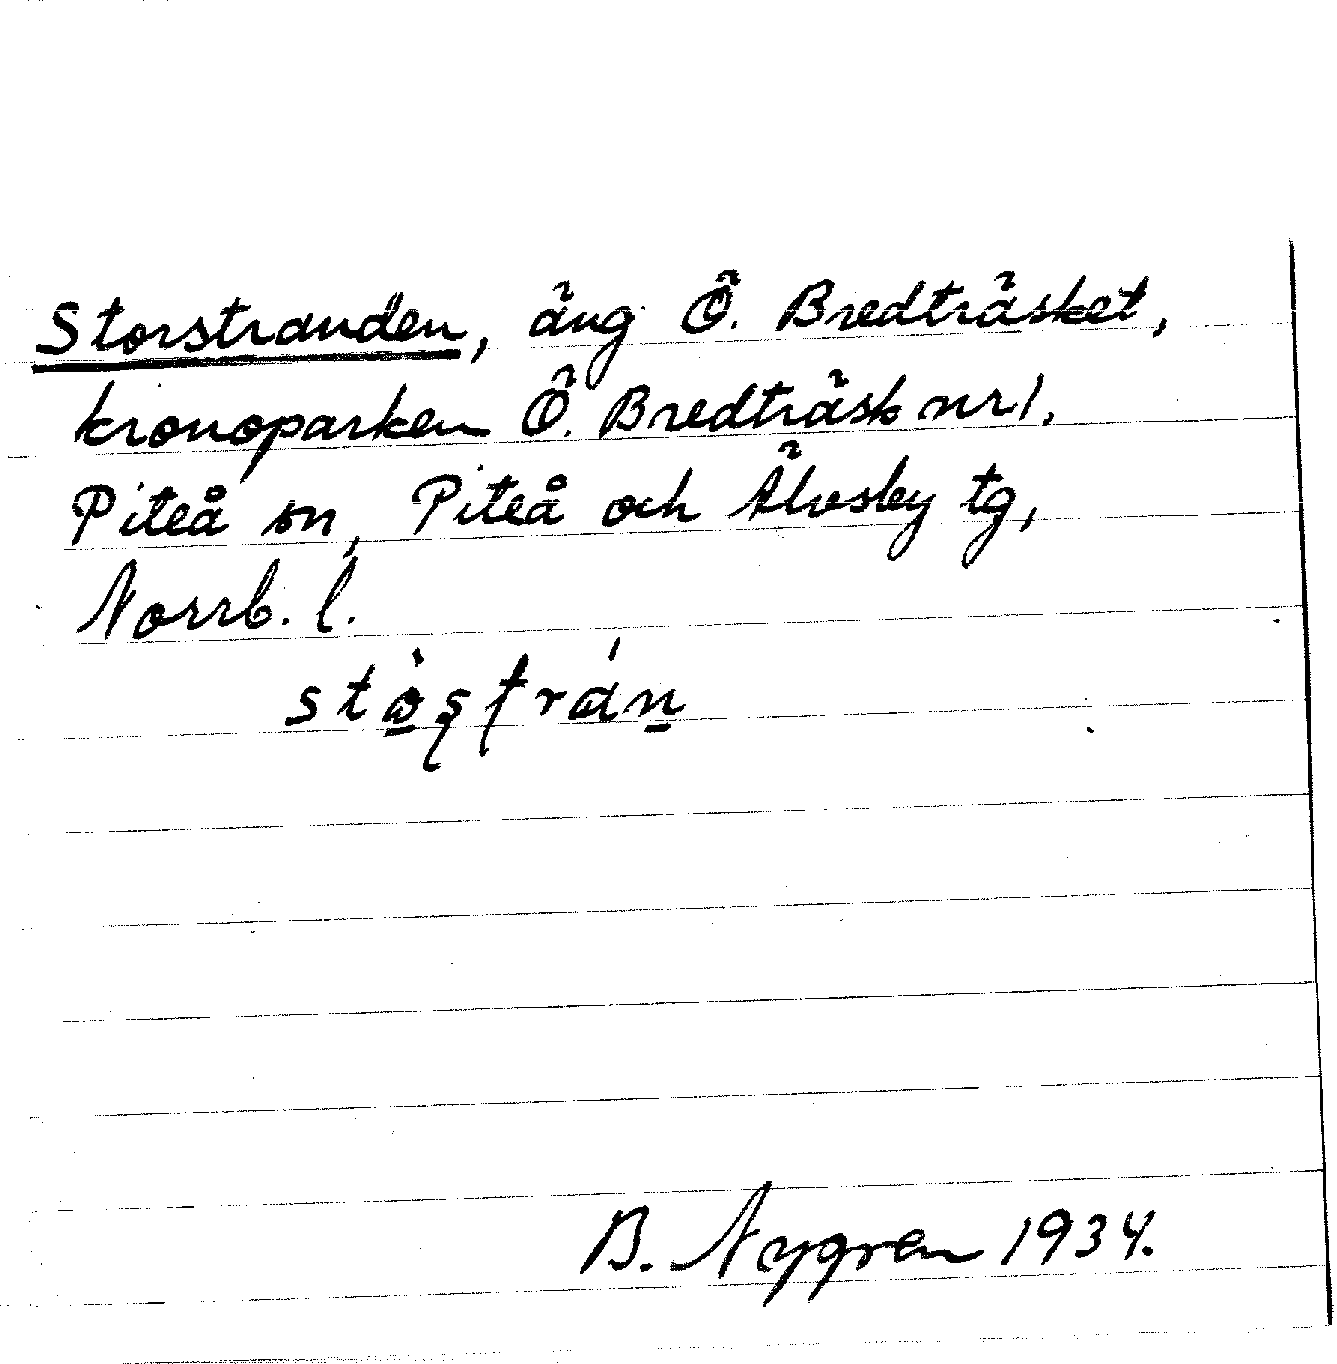 Storstranden, äng Ö. Bredträsket,
kronoparken Ö. Bredträsk nr 1.
Piteå sn, Piteå och Älvsby tg,
Norrb. l.
B. Nygren 1934.